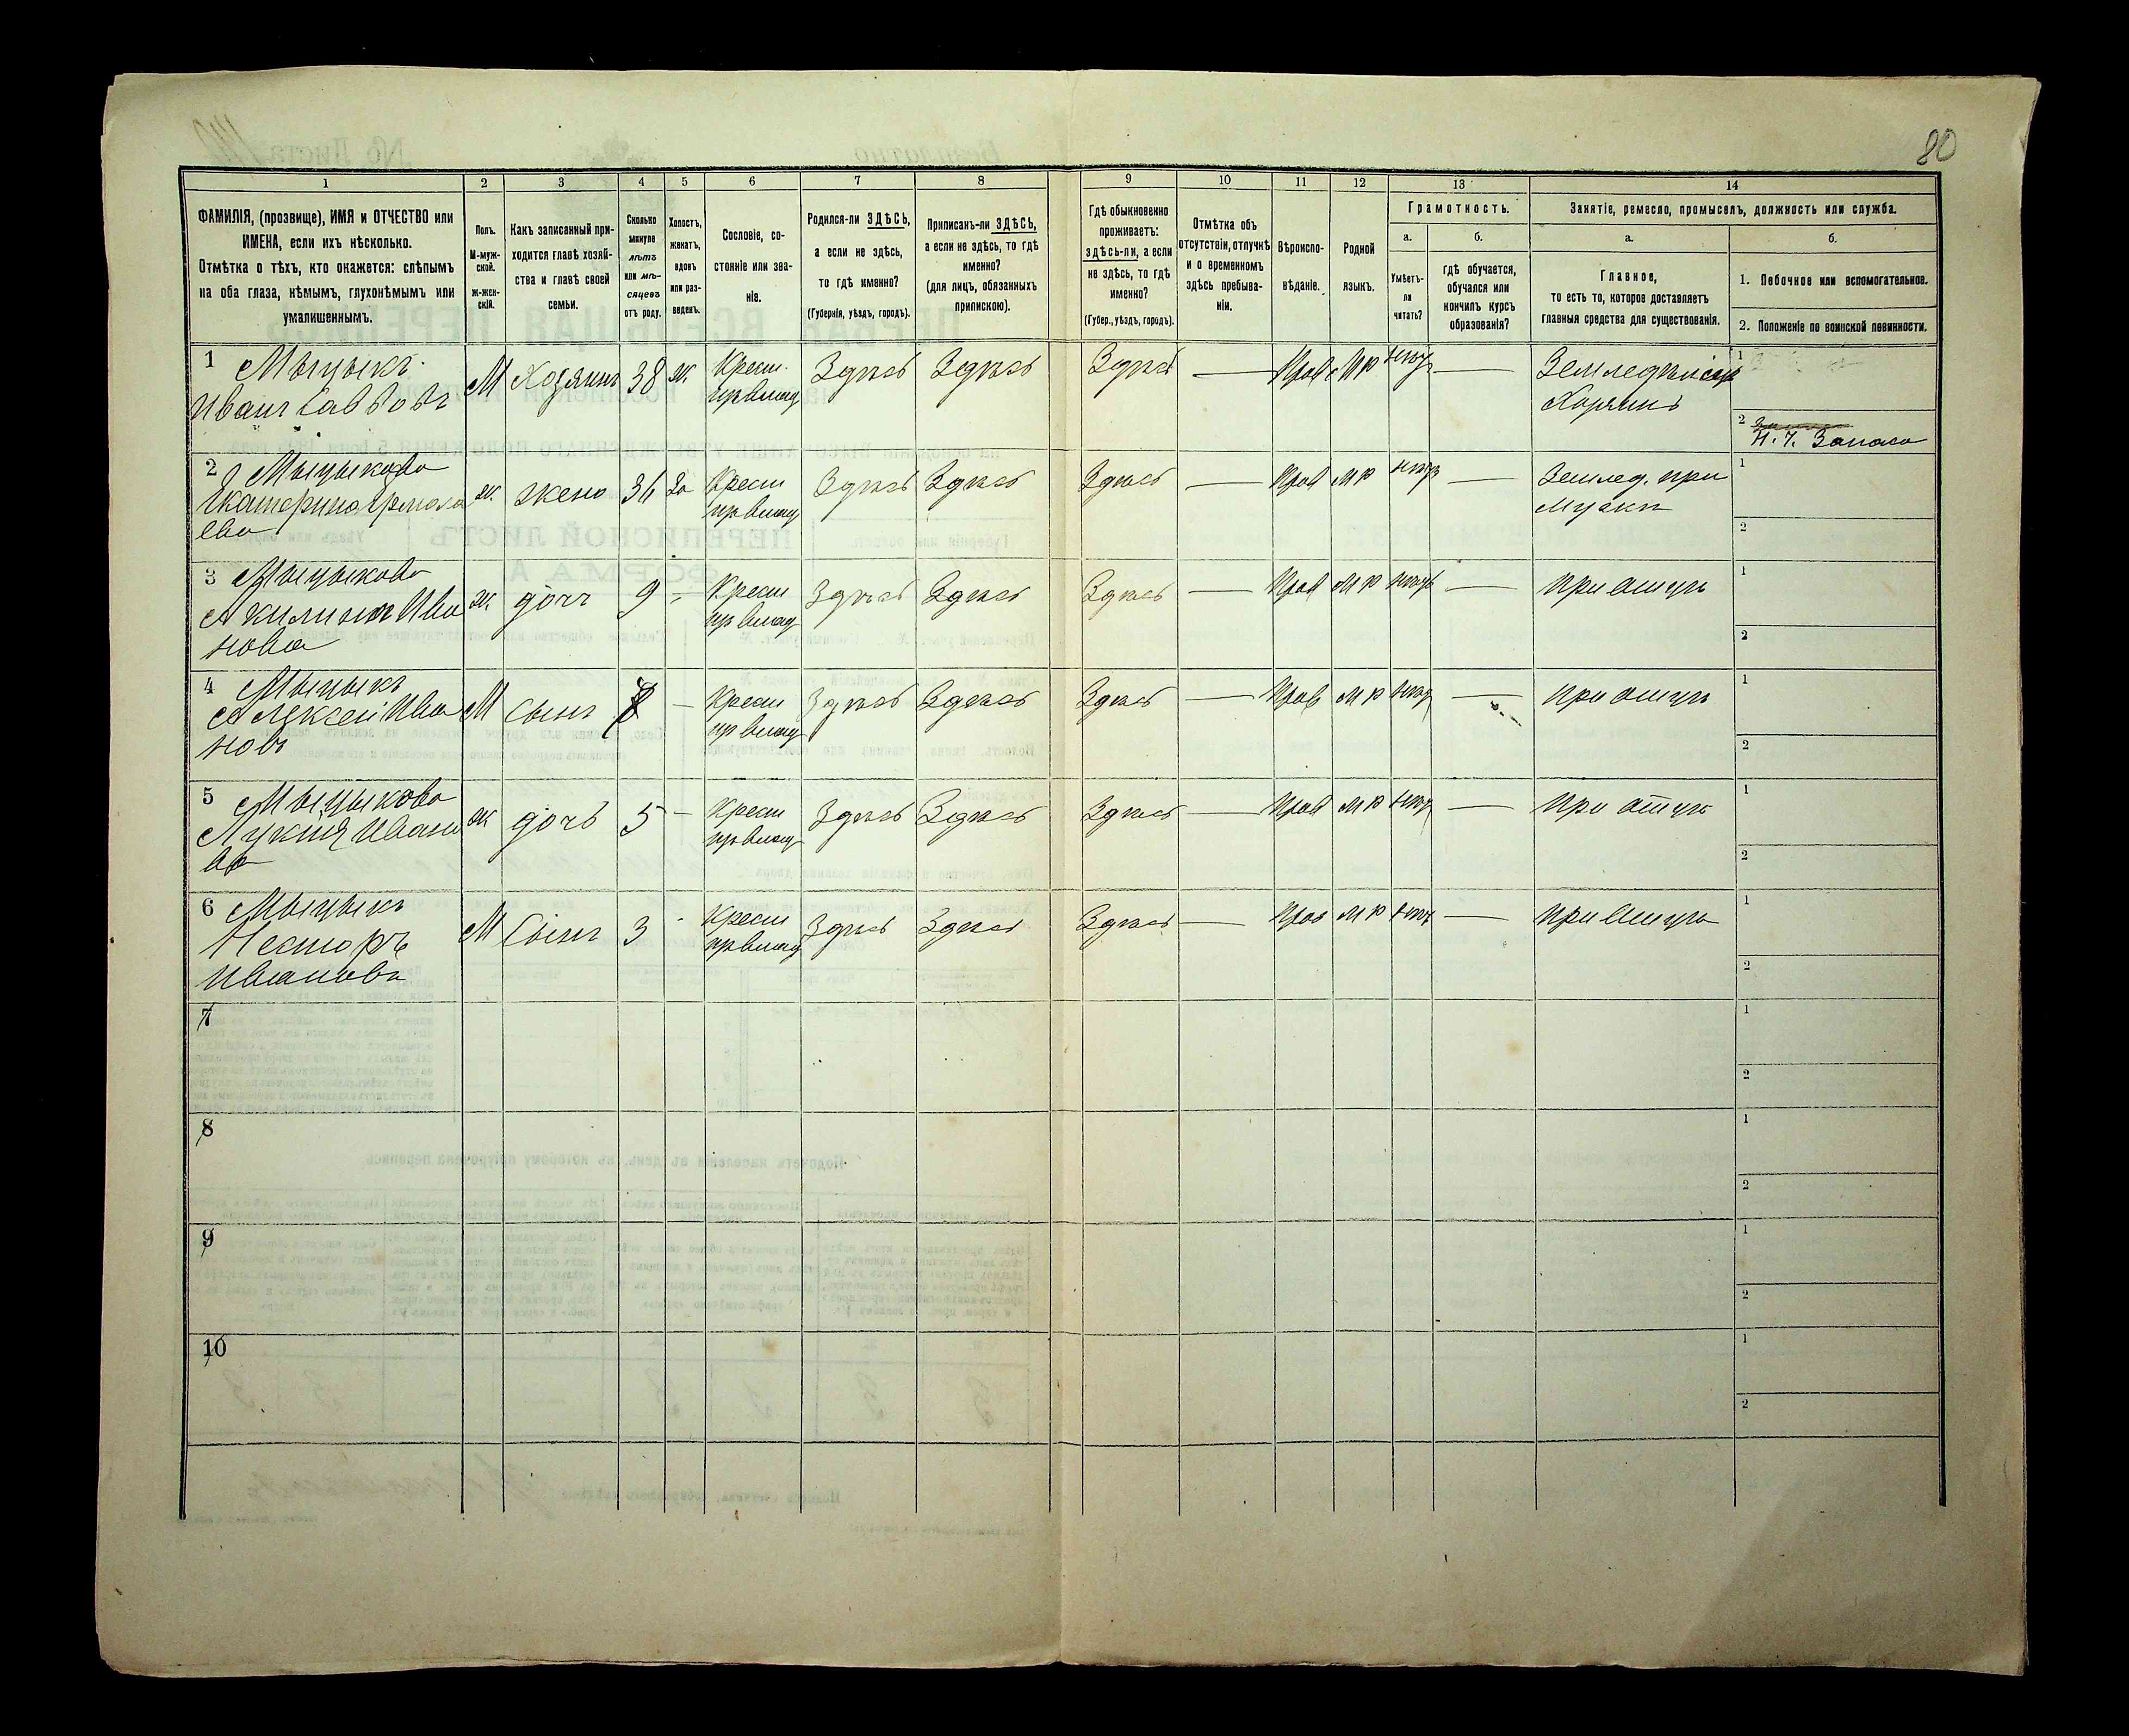 80
1 2 3 4 5 6 7 8 9 10 11 12 13 14
ФАМИЛІЯ, (прозвище), ИМЯ и ОТЧЕСТВО или
ИМЕНА, если ихъ нѣсколько.
Отмѣтка о тѣхъ, кто окажется: слѣпымъ
на оба глаза, нѣмымъ, глухонѣмымъ или
умалишеннымъ.
Полъ.
М-муж-
ской.
ж-жен-
скій.
Какъ записанный при-
ходится главѣ хозяй-
ства и главѣ своей
семьи.
Сколько
минуло
лѣтъ
или мѣ-
сяцевъ
отъ роду.
Холостъ,
женатъ,
вдовъ
или раз-
веденъ.
Сословіе, со-
стояніе или зва-
ніе.
Родился-ли ЗДѢСЬ,
а если не здѣсь,
то гдѣ именно?
(Губернія, уѣздъ, городъ).
Приписанъ-ли ЗДѢСЬ,
а если не здѣсь, то гдѣ
именно?
(для лицъ, обязанныхъ
припискою).
Гдѣ обыкновенно
проживаетъ:
здѣсь-ли, а если
не здѣсь, то гдѣ
именно?
(Губер., уѣздъ, городъ).
Отмѣтка объ
отсутствіи, отлучкѣ
и о временномъ
здѣсь пребыва-
ніи.
Вѣроиспо-
вѣданіе.
Родной
языкъ.
Грамотность.
а.
Умѣетъ-
ли
читать?
б.
гдѣ обучается,
обучался или
кончилъ курсъ
образованія?
Занятіе, ремесло, промыселъ, должность или служба.
а.
Главное,
то есть то, которое доставляетъ
главныя средства для существованія.
б.
1. Побочное или вспомогательное.
2. Положеніе по воинской повинности.
1 Мыцыкъ
Иванъ Савѣовъ
М Хозяинъ 38 ж. Крест. Здѣсь Здѣсь Здѣсь — Прав М р нѣтъ — Земледѣліе
Хозяинъ
1
2 Н. Ч. Запаса
2 Мыцыкова
Екатерина Ермола
ева
ж. жена 36 За Крест Здѣсь Здѣсь Здѣсь — Прав М р нѣтъ — Землед. при
мужѣ
1
2
3 Мыцыкова
Акилина Ива
нова
ж. дочь 9 Крест Здѣсь Здѣсь Здѣсь — Прав М р нѣтъ — при отцѣ
1
2
4 Мыцыкъ
Алексей Ива
новъ
М Сынъ — Крест Здѣсь Здѣсь Здѣсь — Прав М р нѣтъ — при отцѣ
1
2
5 Мыцыкова
Лукия Ивано
ва
ж дочь 5 — Крест Здѣсь Здѣсь Здѣсь — Прав М р нѣтъ — при отцѣ
1
2
6 Мыцыкъ
Несторъ
Ивановъ
М Сынъ 3 - Крест Здѣсь Здѣсь Здѣсь — Прав М р нѣтъ — при отцѣ
1
2
7
1
2
8
1
2
9
1
2
10
1
2